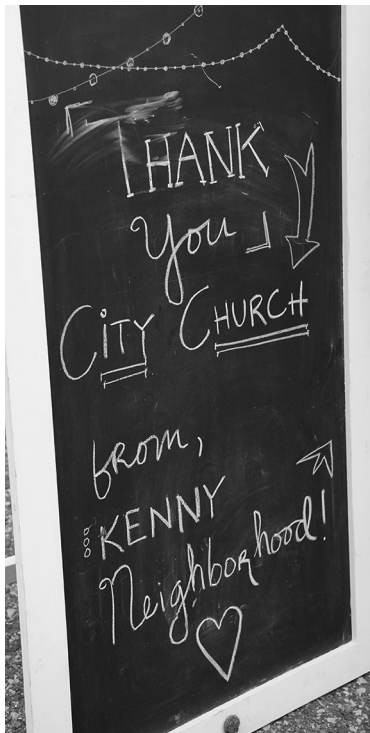 THANK
You
CiTY CHURCH
from,
KENNY
Neighborhood!